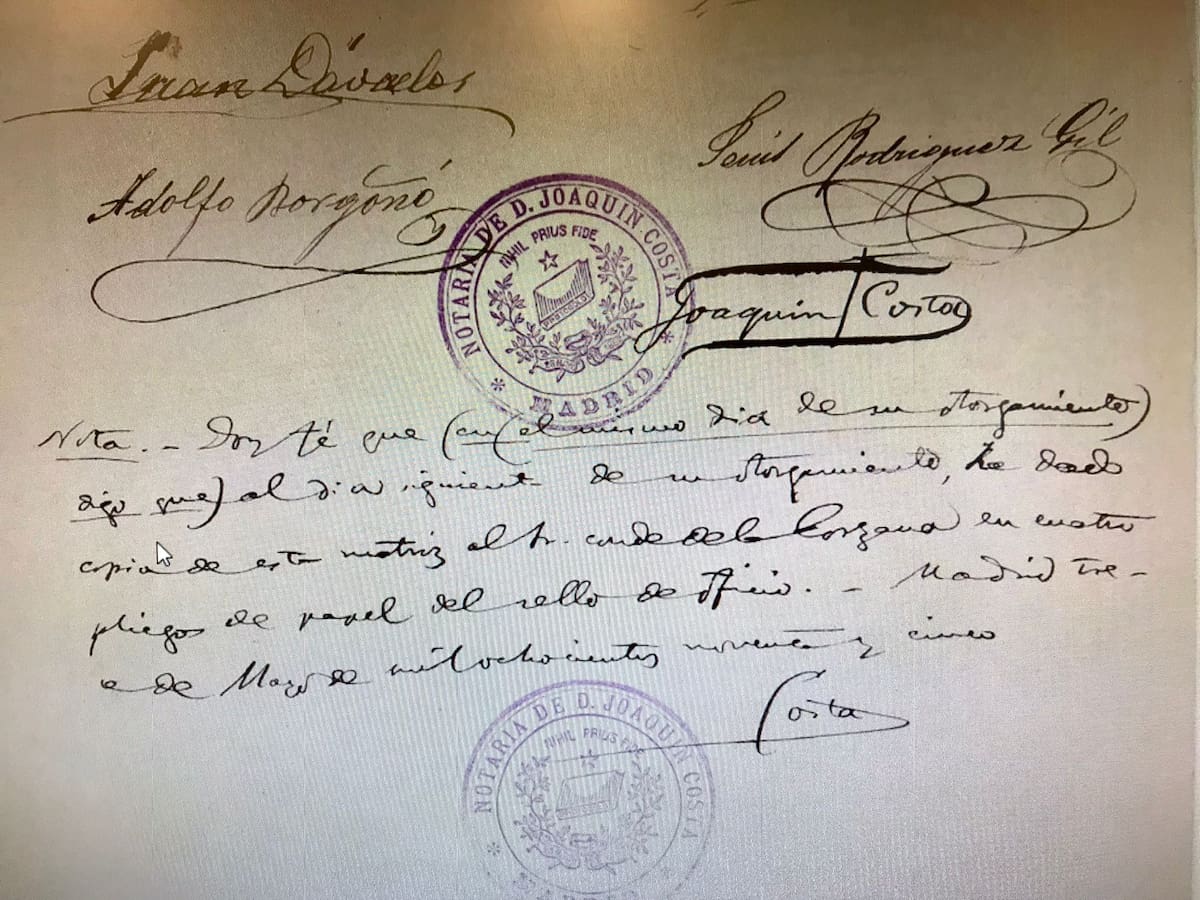 Juan Dávalos
Luis Rodriguez Gil
Adolfo Borgoñó
NOTARIA DE D. JOAQUIN COSTA
NIHIL PRIUS FIDE
MADRID
Joaquin Costa
Nota. - Doy fé que (en el mismo dia de su otorgamiento)
digo que) al dia siguiente de su otorgamiento, he dado
copia de esta matriz al Sr. conde de la Corzana en cuatro
pliegos de papel del sello de oficio. - Madrid tre-
ce de Mayo de mil ochocientos noventa y cinco
Costa
NOTARIA DE D. JOAQUIN COSTA
NIHIL PRIUS FIDE
MADRID